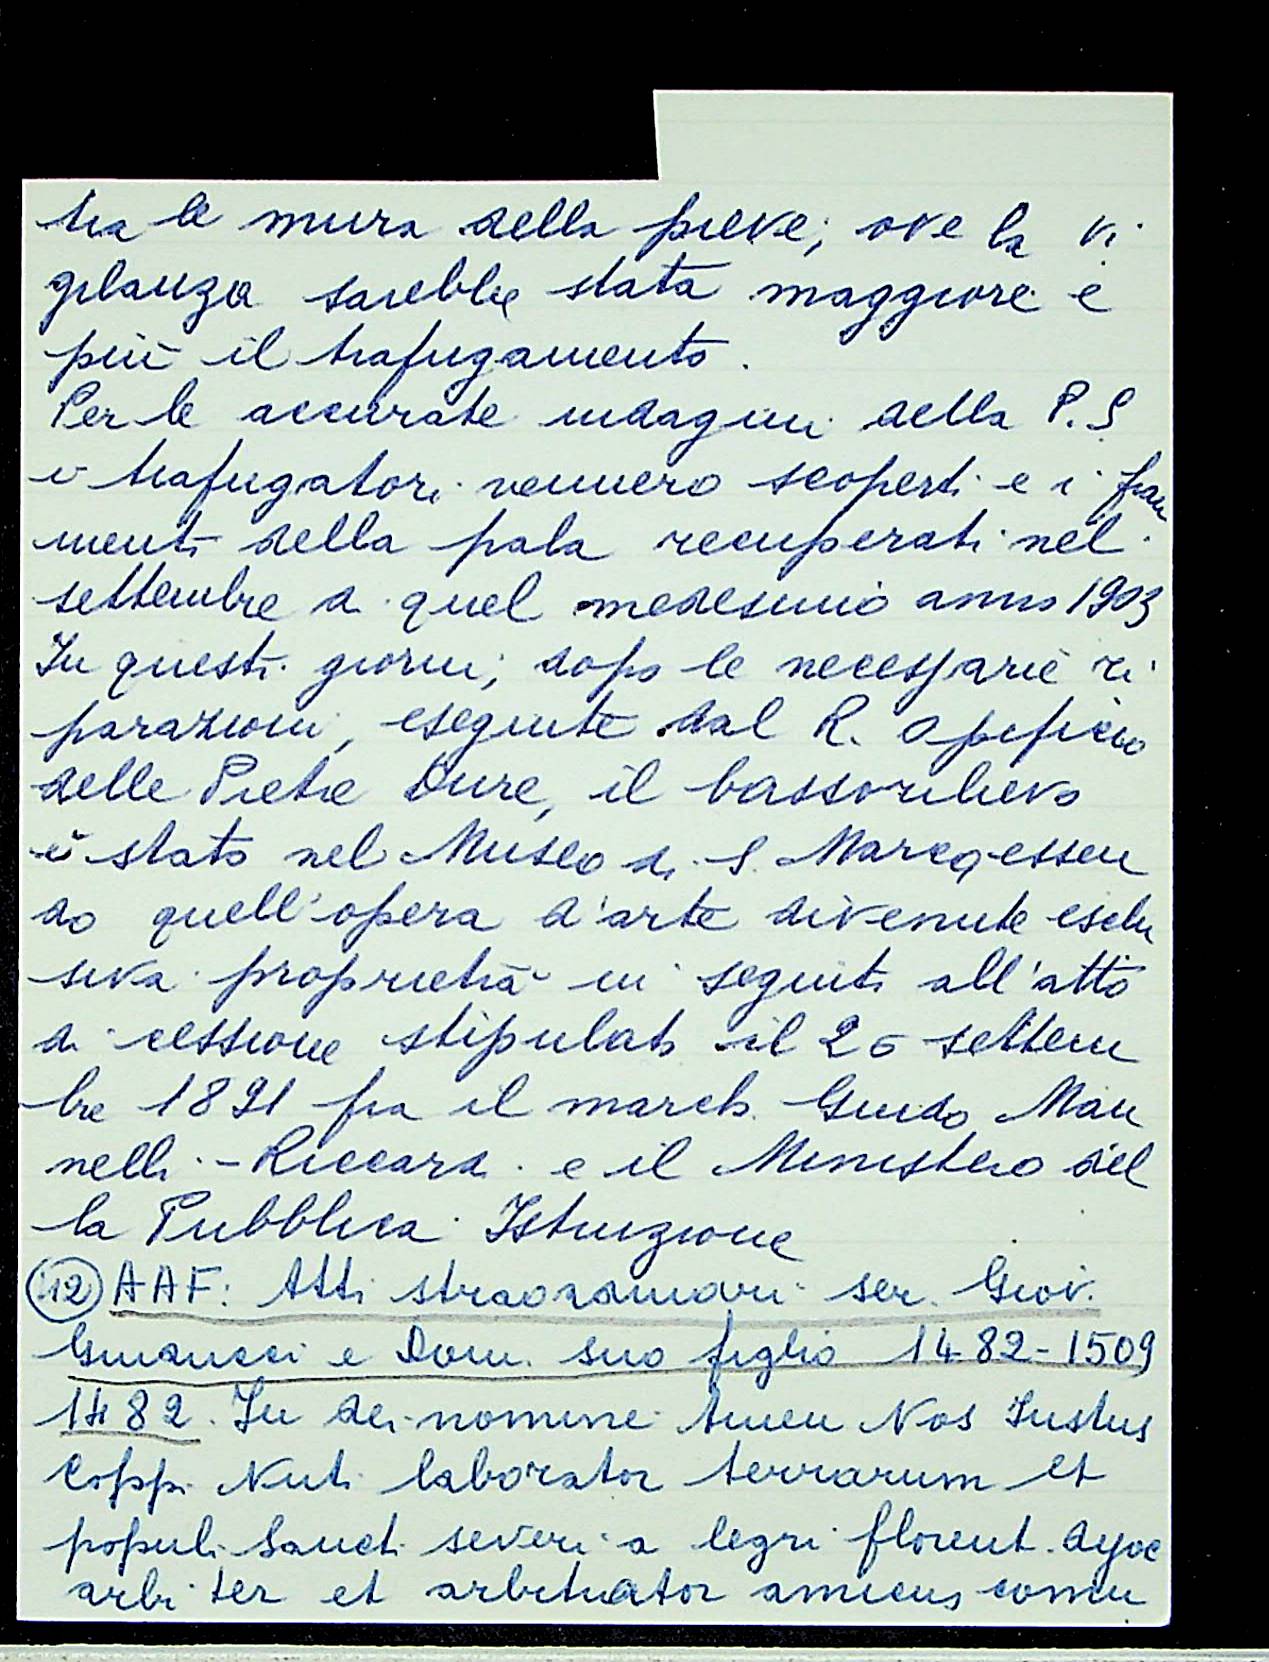 tra le mura della pieve, ove la vi
gilanza sarebbe stata maggiore e
più il trafugamento.
Per le accurate indagini della P.S
i trafugatori vennero scoperti e i fram
menti della pala recuperati nel
settembre di quel medesimo anno 1903
In questi giorni, dopo le necessarie ri
parazioni, eseguite dal R. Opificio
delle Pietre Dure, il bassorilievo
è stato nel Museo di S. Marco, essen
do quell'opera d'arte divenute esclu
siva proprietà in seguito all'atto
di cessione stipulato il 26 settem
bre 1891 fra il march. Guido Man
nelli-Riccardi e il Ministero del
la Pubblica Istruzione
(12) AAF: Atti straordinari ser. Giov.
Guiducci e Dom. suo figlio 1482-1509
1482. In dei nomine Amen Nos Iustus
Coppi Nuti laborator terrarum et
populi Sancti severi a legri florent. dyoc
arbiter et arbitrator amicus comu